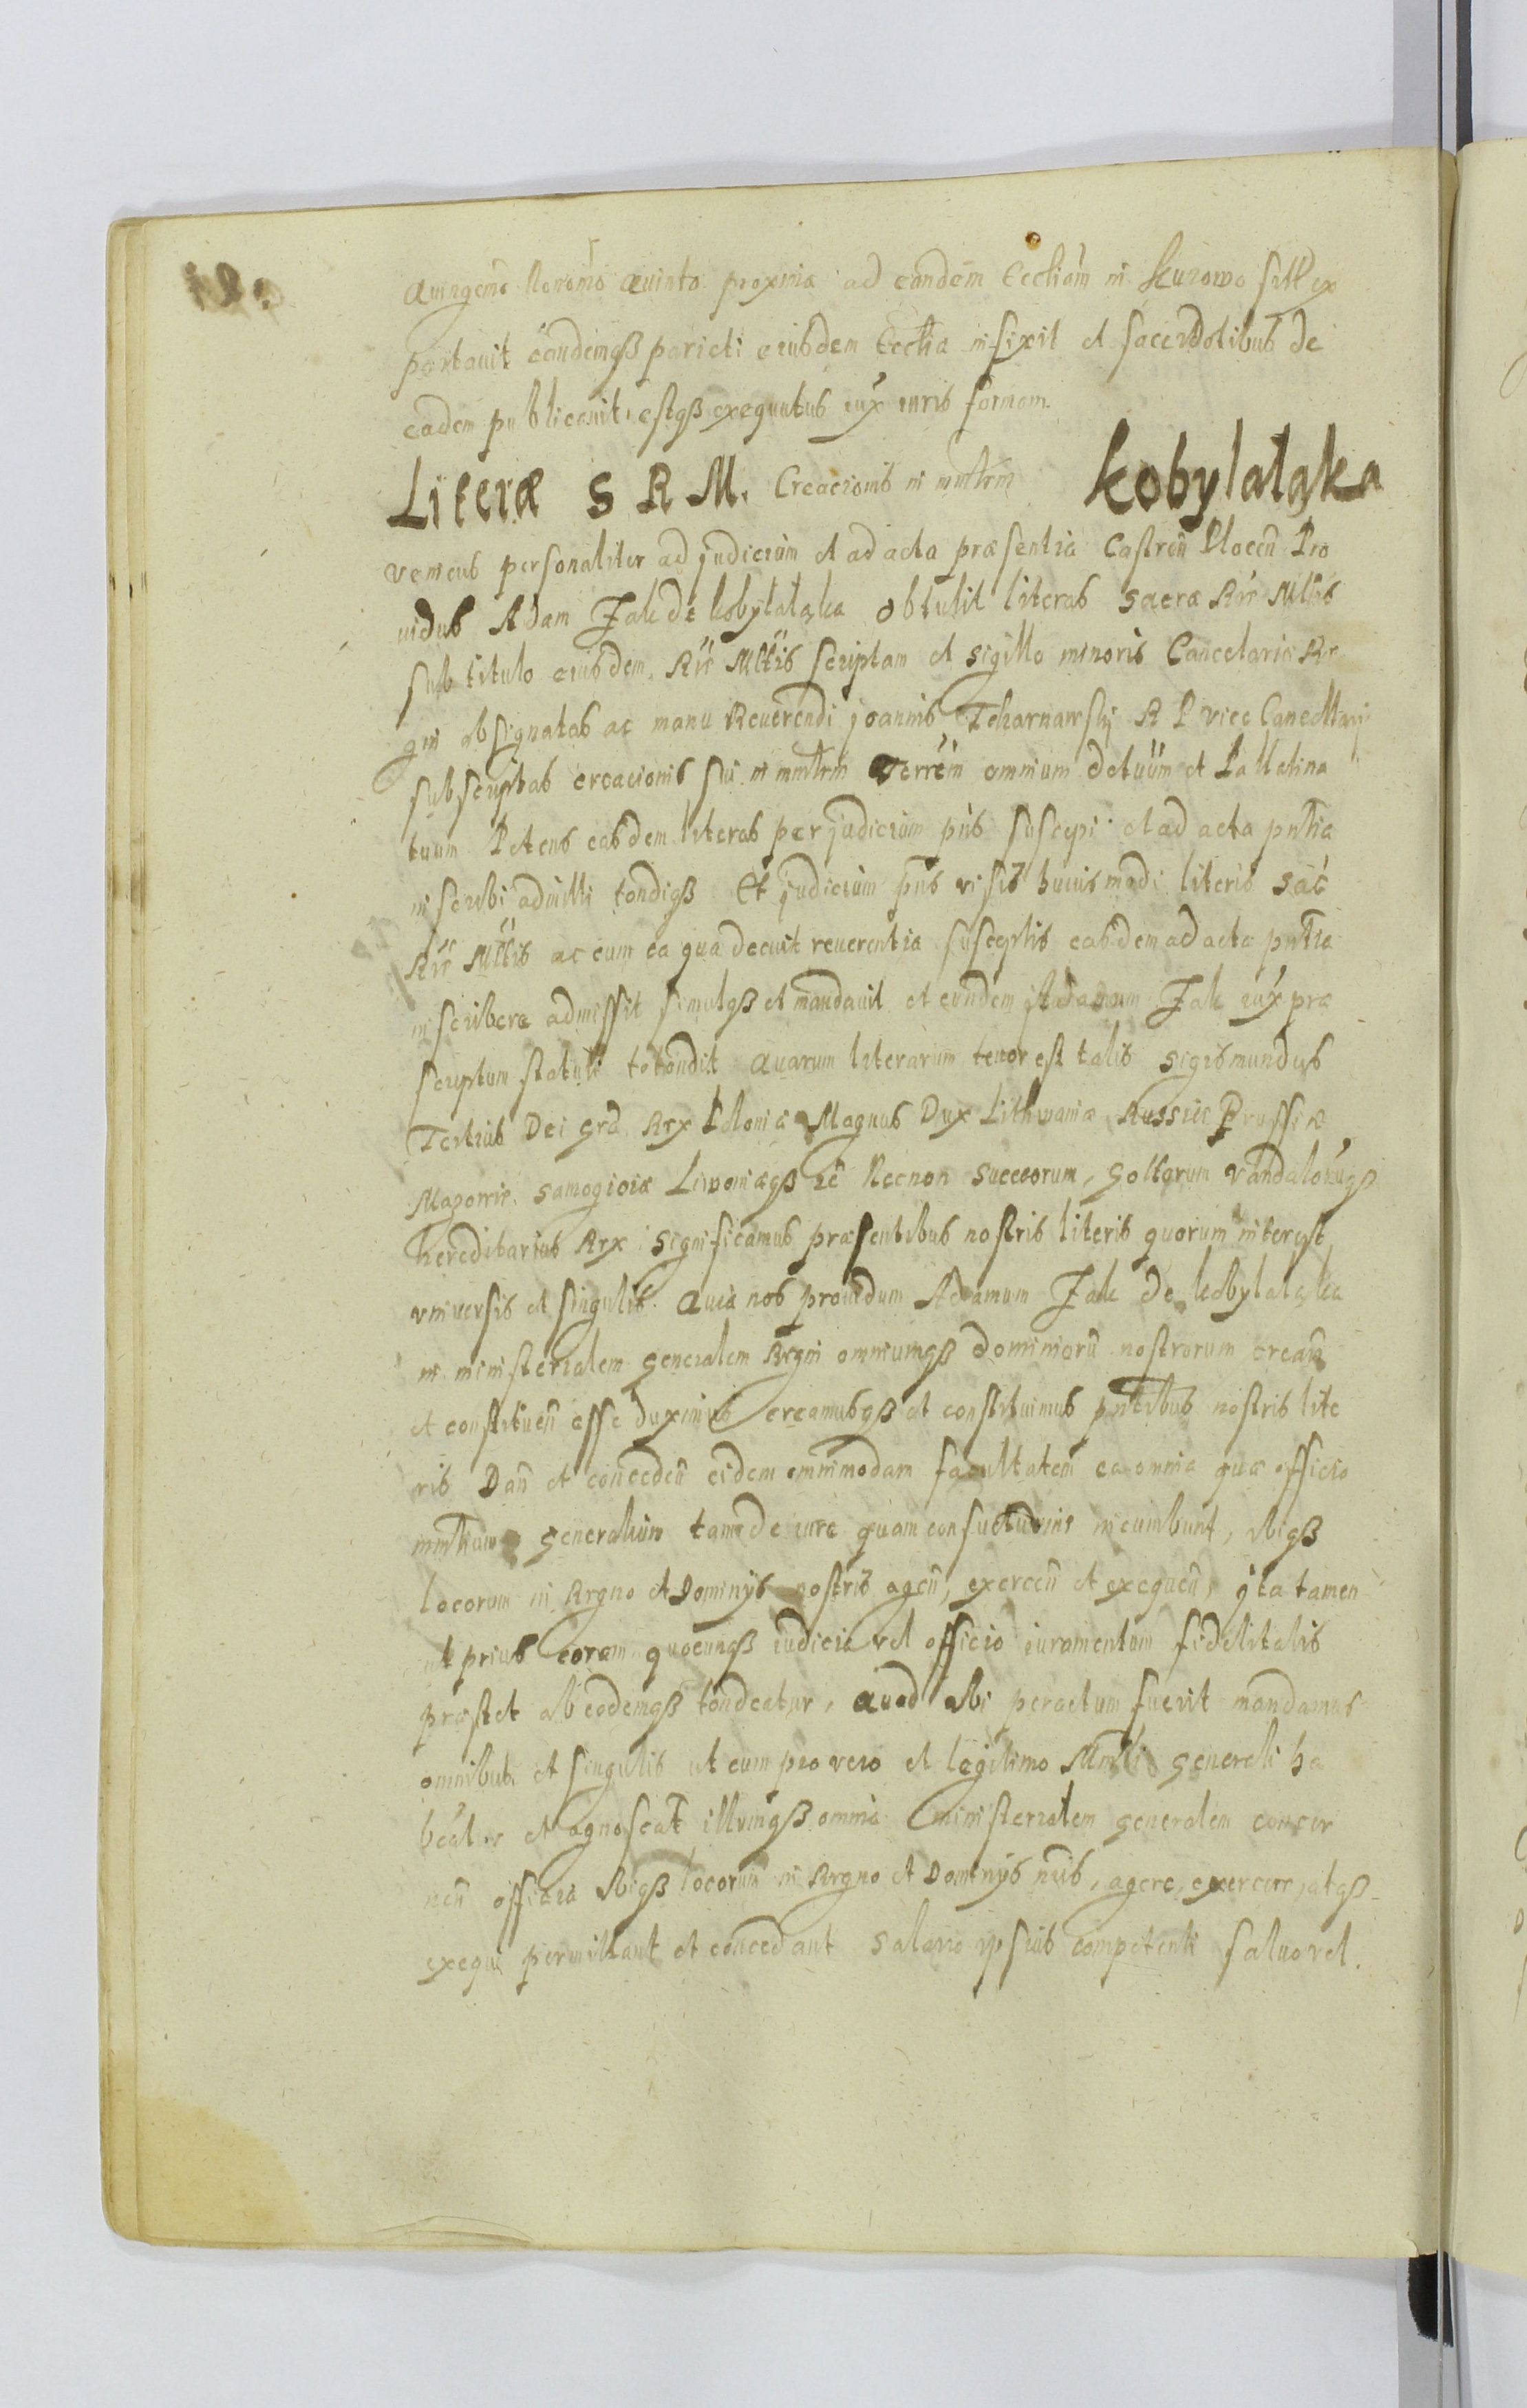 Quingenē Nonomo Quinto proxima ad eandem Eccliam in Kurowo
portauit eandemqß parieti eiusdem Ecclia infixit et sacerdotibus de
eadem publicauit, estqß exequutus iux iuris formam.
Literæ S R M. Creacionis in mnlrem Kobylałąka
veniens personaliter ad judicium et ad acta præsentia Castren Plocen Pro
uidus Adam Jak de Kobylałąka obtulit literas Sacræ Rie Mttis
sub titulo eiusdem Rie Mttis scriptam et sigillo minoris Cancelarie Re
gni obsignatas ac manu Reuerendi joannis Tcharnawskij R P vice Cancellarij
subscriptas creacionis sui in mnlrem Terrem omnium detuum et Pallatina
tuum Petens easdem literas per judicium pñs suscepi et ad acta pntia
inscribi admitti tondiqß Et judicium pñs visis huiusmodi literis Sac
Rie Mttis ac cum ea qua decuit reuerentia susceptis easdem ad acta pntia
inscribere admissit simulqß et mandauit et eundem Adamum Jak iux præ
scriptum statuti totondit Quarum literarum tenor est talis Sigismundus
Tertius Dei gra Rex Poloniæ Magnus Dux Lithwaniæ Russiæ Prussiæ
Mazouiæ, Samogitiæ Liuoniæqß ec̃ Necnon Suecorum, Gottorum Vandalorumqß
hereditarius Rex Significamus præsentibus nostris literis quorum interest
vniuersis et singulis. Quia nos prouidum Adamum Jak de Kobylałąka
in ministerialem generalem Regni omniumqß dominiorū nostrorum crean
et constituen esse duximus creamusqß et constituimus pntibus nostris lite
ris Dan et conceden eidem omnimodam facultatem ea omnia quæ officio
mnlium generalium tam de iure quam consuetudine incumbunt, vbiqß
locorum in Regno et Dominijs nostris agen, exercen et exequen, ita tamen
ut prius coram quocunqß iudicio vel officio iuramentum fidelitatis
præstet ab eodemqß tondeatur, Quod vbi peractum fuerit mandamus
omnibus et singulis ut eum pro vero et legitimo Mnli generali ha
beat et agnoscat illumqß omnia ministerialem generalem concer
nen officia vbiqß locorum in Regno et Dominijs nris, agere, exercere, atqß
exequi permittant et concedant salario ipsius competenti saluo vel.